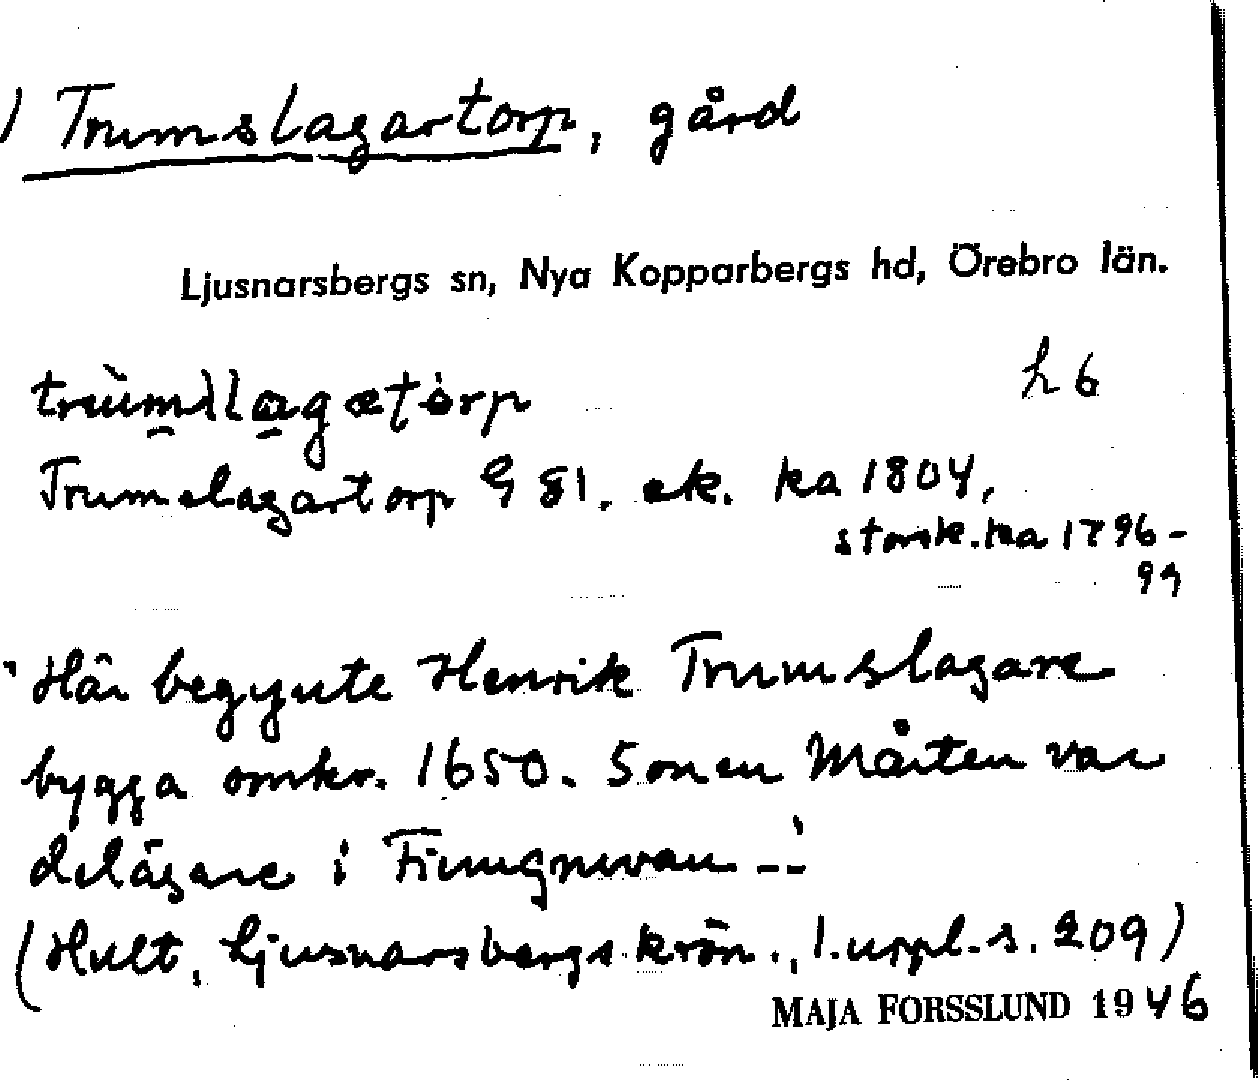 ) Trumslagartorp, gård
Ljusnarsbergs sn, Nya Kopparbergs hd, Örebro län.
h 6
Trumslagartorp G 81. ek. ka 1804,
storsk. ka 1796-
99
"Här begynte Henrik Trumslagare
bygga omkr. 1650. Sonen Mårten var
delägare i Finngruvan --"
(Hult, Ljusnarsbergs krön., 1. uppl. s. 209)
MAJA FORSSLUND 1946